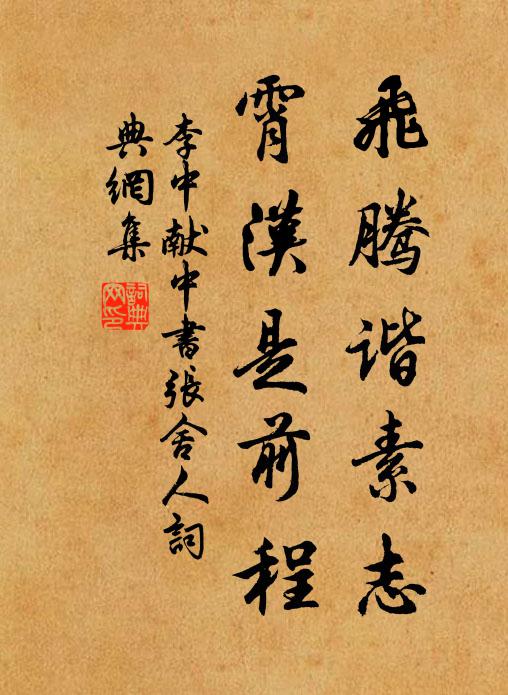 飛騰谐素志
霄漢是前程
李中献中書張舍人詞
典網集
詞典网印